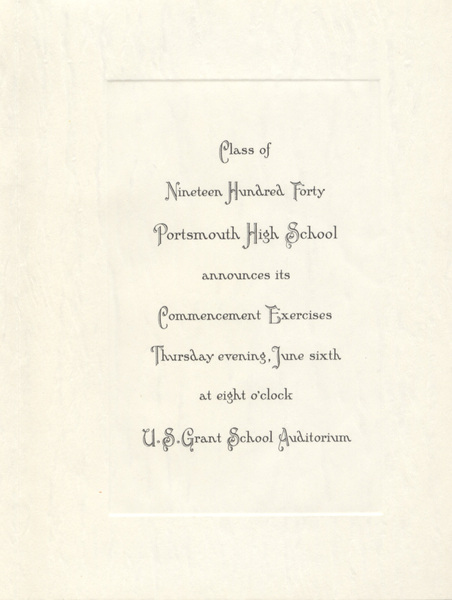 Class of
Nineteen Hundred Forty
Portsmouth High School
announces its
Commencement Exercises
Thursday evening, June sixth
at eight o'clock
U.S. Grant School Auditorium